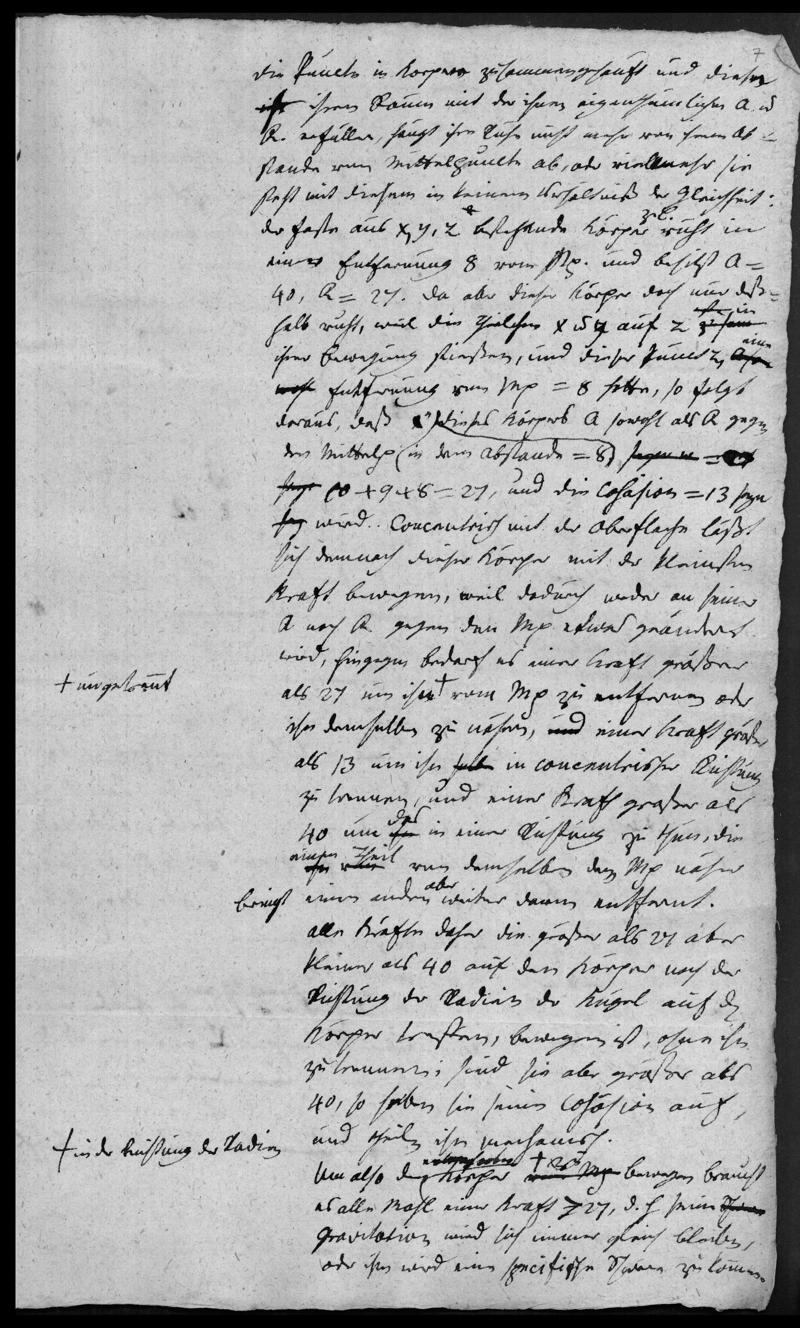 7
die Puncte in Körper zusammengehäuft und diese
ihren Raum mit der ihnen eigenthümlichen A. u
R. erfüllen, hängt ihre Ruhe nicht mehr von ihrem Ab-
stande vom Mittelpuncte ab, oder vielmehr sie
steht mit diesem in keinem Verhältniß der Gleichheit:
der feste aus x, y, z bestehende Körper z. B. ruht in
einer Entfernung 8 vom Mp. und besitzt A =
40, R = 27. Da aber dieser Körper doch nur deß-
halb ruht, weil die Theilchen x u y auf z in
ihrer Bewegung stießen, und dieser Punct z, eine
Entfernung vom Mp = 8 hatte, so folgt
daraus, daß dieses Körpers A sowohl als R gegen
den Mittelp (in dem Abstande = 8)
10 + 9 + 8 = 27, und die Cohäsion = 13 seyn
wird. Concentrisch mit der Oberfläche läßt
sich demnach dieser Körper mit der kleinsten
Kraft bewegen, weil dadurch weder an seiner
A noch R gegen den Mp etwas geändert
wird, hingegen bedarf es einer Kraft größer
+ ungetrennt
als 27 um ihn + vom Mp zu entfernen oder
ihn demselben zu nähern, einer Kraft größer
als 13 um ihn in concentrischer Richtung
zu trennen, und einer Kraft größer als
40 um das in einer Richtung zu thun, die
einen Theil von demselben dem Mp näher
bringt einen andern aber weiter davon entfernt.
Alle Kräfte daher die größer als 27 aber
kleiner als 40 auf den Körper nach der
Richtung der Radien der Kugel auf d
Körper treffen, bewegen ihn, ohne ihn
zu trennen; sind sie aber größer als
40, so heben sie seine Cohäsion auf,
und theilen ihn mechanisch.
+ in der Richtung der Radien
Um also den Körper + zu bewegen braucht
es alle Mahl einer Kraft > 27, d. h. seine
Gravitation wird sich immer gleich bleiben,
oder ihm wird eine specifische Schwere zukomm-